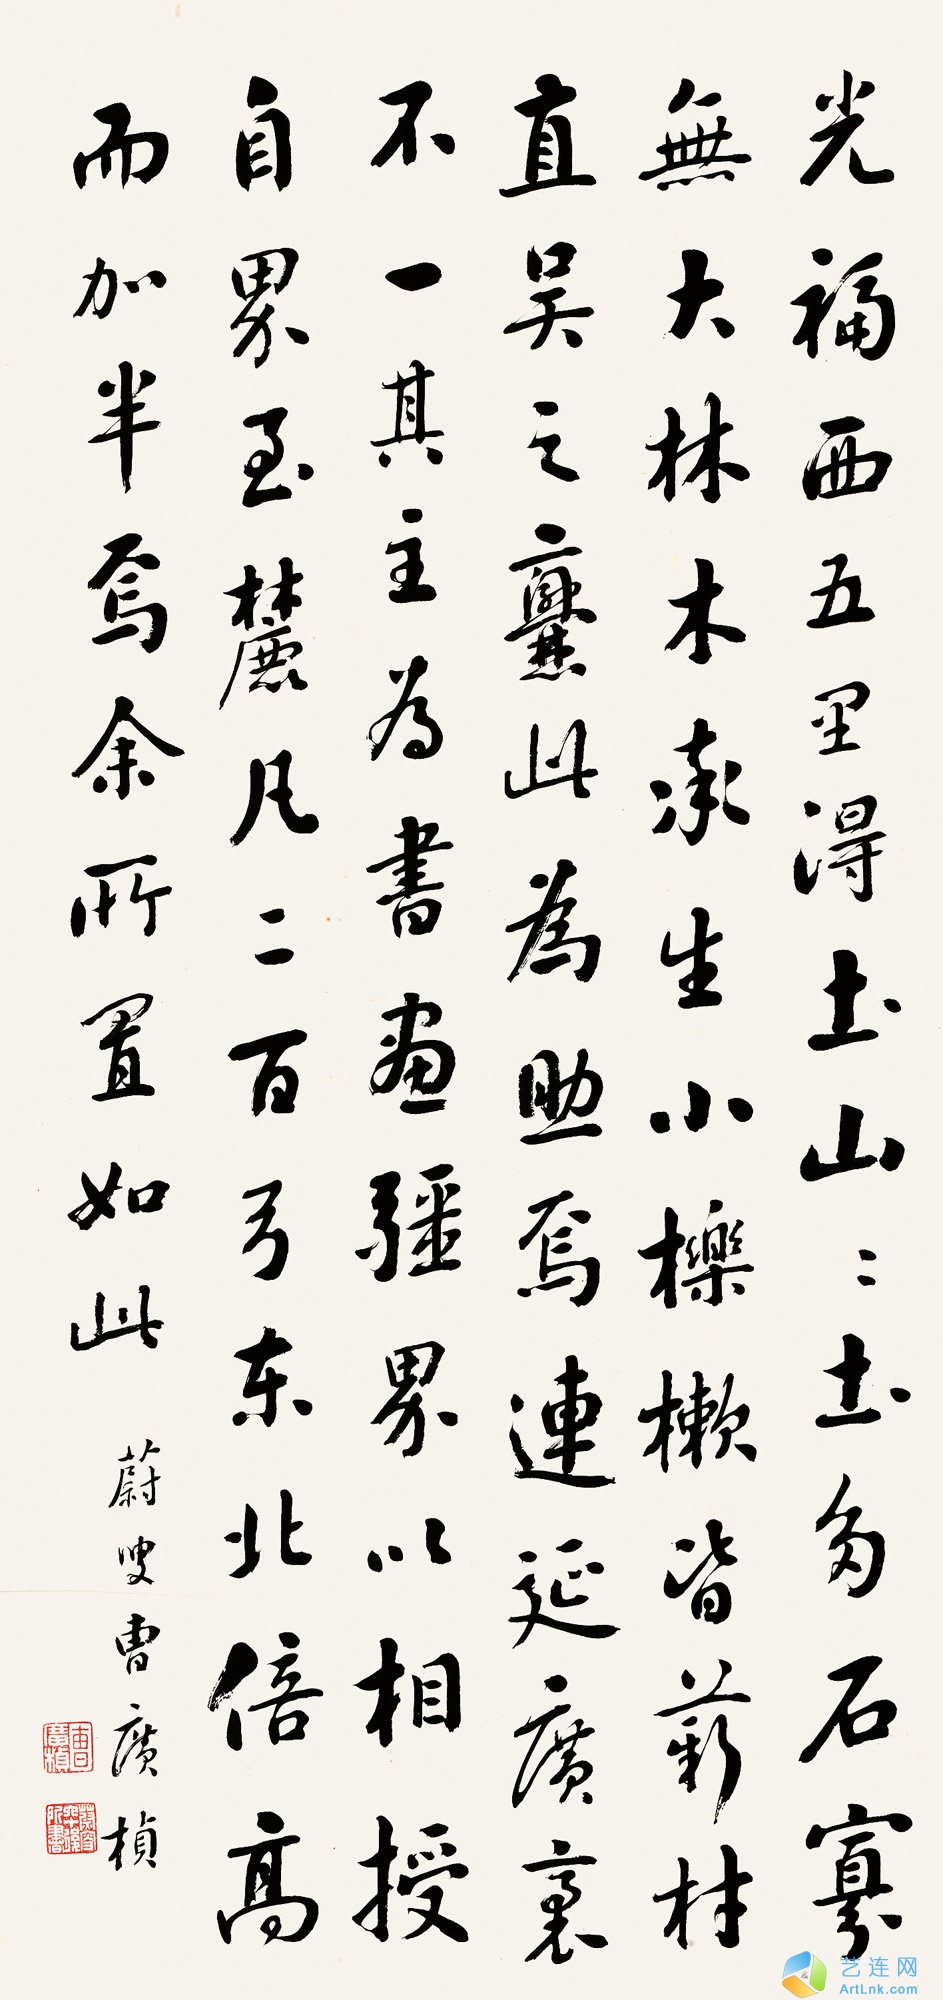 光福西五里得土山〻土多石寡
無大林木承生小櫟樕皆薪材
直吴之爨此為助焉連延廣袤
不一其主為書畫疆界以相授
自界至麓凡二百弓東北倍高
而加半焉余所置如此
蔚叟曹廣楨
曹廣楨
艺连网
ArtLnk.com